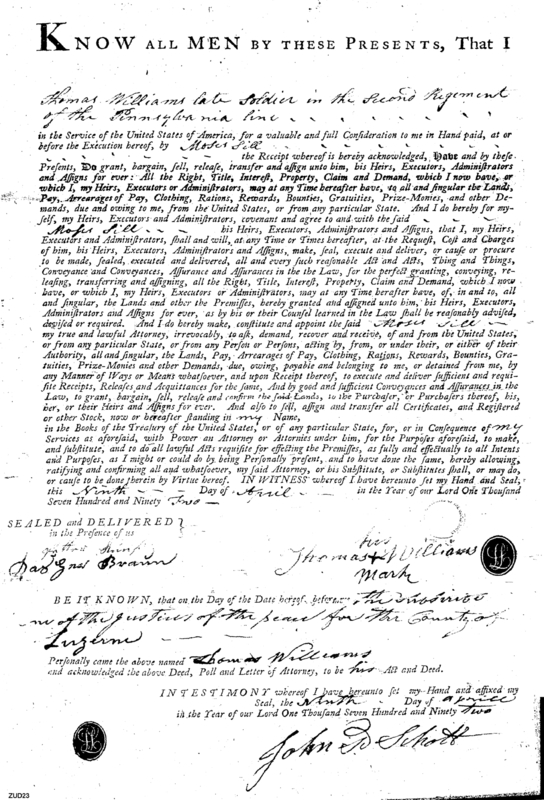 KNOW ALL MEN BY THESE PRESENTS, That I
Thomas Williams late Soldier in the Second Regement
of the Pennsylvania line
in the Service of the United States of America, for a valuable and full Consideration to me in Hand paid, at or
before the Execution hereof, by Moses Sill
the receipt whereof is hereby acknowledged, Have and by these
Presents, Do grant, bargain, sell, release, transfer and assign unto him, his Heirs, Executors, Administrators
and Assigns for ever: All the Right, Title, Interest, Property, Claim and Demand, which I now have, or
which I, my Heirs, Executors or Administrators, may at any Time hereafter have, to all and singular the Lands,
Pay, Arrearages of Pay, Clothing, Rations, Rewards, Bounties, Gratuities, Prize-Monies, and other De-
mands, due and owing to me, from the United States, or from any particular State. And I do hereby for my-
self, my Heirs, Executors and Administrators, covenant and agree to and with the said
Moses Sill his Heirs, Executors, Administrators and Assigns, that I, my Heirs,
Executors and Administrators, shall and will, at any Time or Times hereafter, at the Request, Cost and Charges
of him, his Heirs, Executors, Administrators and Assigns, make, seal, execute and deliver, or cause or procure
to be made, sealed, executed and delivered, all and every such reasonable Act and Acts, Thing and Things,
Conveyance and Conveyances, Assurance and Assurances in the Law, for the perfect granting, conveying, re-
leasing, transferring and assigning, all the Right, Title, Interest, Property, Claim and Demand, which I now
have, or which I, my Heirs, Executors or Administrators, may at any Time hereafter have, of, in and to, all
and singular, the Lands and other the Premisses, hereby granted and assigned unto him, his Heirs, Executors,
Administrators and Assigns for ever, as by his or their Counsel learned in the Law shall be reasonably advised,
devised or required. And I do hereby make, constitute and appoint the said Moses Sill
my true and lawful Attorney, irrevocably, to ask, demand, recover and receive, of and from the United States,
or from any particular State, or from any Person or Persons, acting by, from, or under them, or either of their
Authority, all and singular, the Lands, Pay, Arrearages of Pay, Clothing, Rations, Rewards, Bounties, Gra-
tuities, Prize-Monies and other Demands, due, owing, payable and belonging to me, or detained from me, by
any Manner of Ways or Means whatsoever, and upon Receipt thereof, to execute and deliver sufficient and requi-
site Receipts, Releases and Acquittances for the same, And by good and sufficient Conveyances and Assurances in the
Law, to grant, bargain, sell, release and confirm the said Lands, to the Purchaser, or Purchasers thereof, his,
her, or their Heirs and Assigns for ever. And also to sell, assign and transfer all Certificates, and Registered
or other Stock, now or hereafter standing in my Name,
in the Books of the Treasury of the United States, or of any particular State, for, or in Consequence of my
Services as aforesaid, with Power an Attorney or Attornies under him, for the Purposes aforesaid, to make,
and substitute, and to do all lawful Acts requisite for effecting the Premisses, as fully and effectually to all Intents
and Purposes, as I might or could do by being Personally present, and to have done the same, hereby allowing,
ratifying and confirming all and whatsoever, my said Attorney, or his Substitute, or Substitutes shall, or may do,
or cause to be done therein by Virtue hereof. IN WITNESS whereof I have hereunto set my Hand and Seal,
this Ninth Day of April in the Year of our Lord One Thousand
Seven Hundred and Ninety Two
SEALED and DELIVERED
in the Presence of us
his
Thomas Williams
Mark
BE IT KNOWN, that on the Day of the Date hereof, before the
one of the justices of the peace for the County of
Luzerne
Personally came the above named Thomas Williams
and acknowledged the above Deed, Poll and Letter of Attorney, to be his Act and Deed.
IN TESTIMONY whereof I have hereunto set my Hand and affixed my
Seal, the Ninth Day of Aprill
in the Year of our Lord One Thousand Seven Hundred and Ninety Two
John P Schott
ZUD23